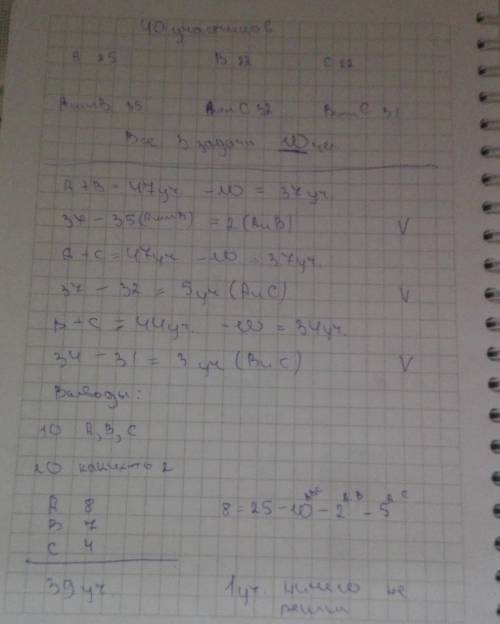 40 участников
A 25 B 22 C 22
AилиB 35 AилиC 32 BилиC 31
Все 3 задачи 10 чел
A + B = 47уч - 10 = 37уч.
37 - 35(AилиB) = 2 (AиB) V
A + C = 47уч - 10 = 37уч.
37 - 32 = 5уч (AиC) V
B + C = 44уч. - 10 = 34уч.
34 - 31 = 3 уч (BиC) V
Выводы:
10 A, B, C
10 какие-то 2
A 8 8 = 25 - 10^ABC - 2^AB - 5^AC
B 7
C 4
39уч 1уч. ничего не
решил